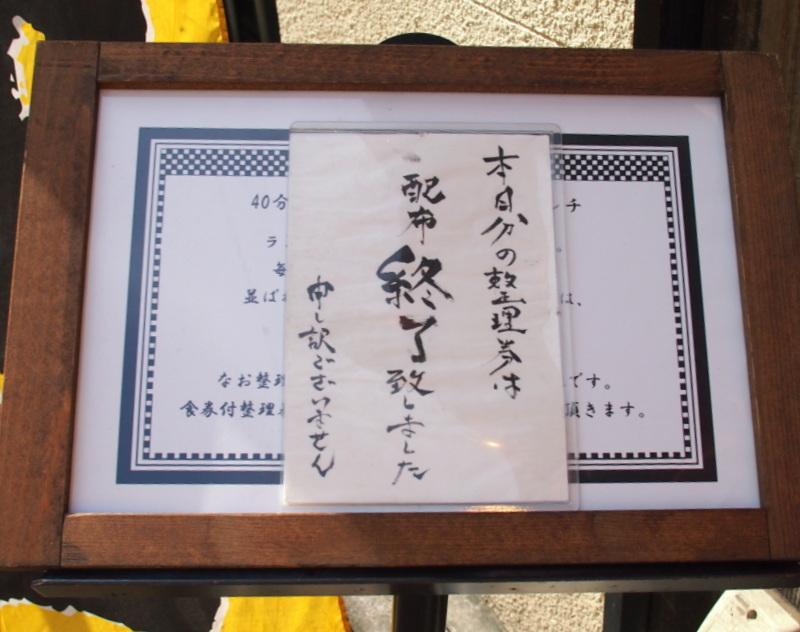 本日分の整理券は
配布終了致しました
申し訳ございません
40分
ンチ
ラ
。
毎
並ばれ
は、
なお整理
です。
食券付整理
頂きます。